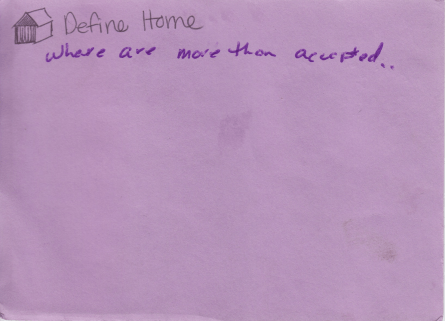 Define Home
where are more than accepted..